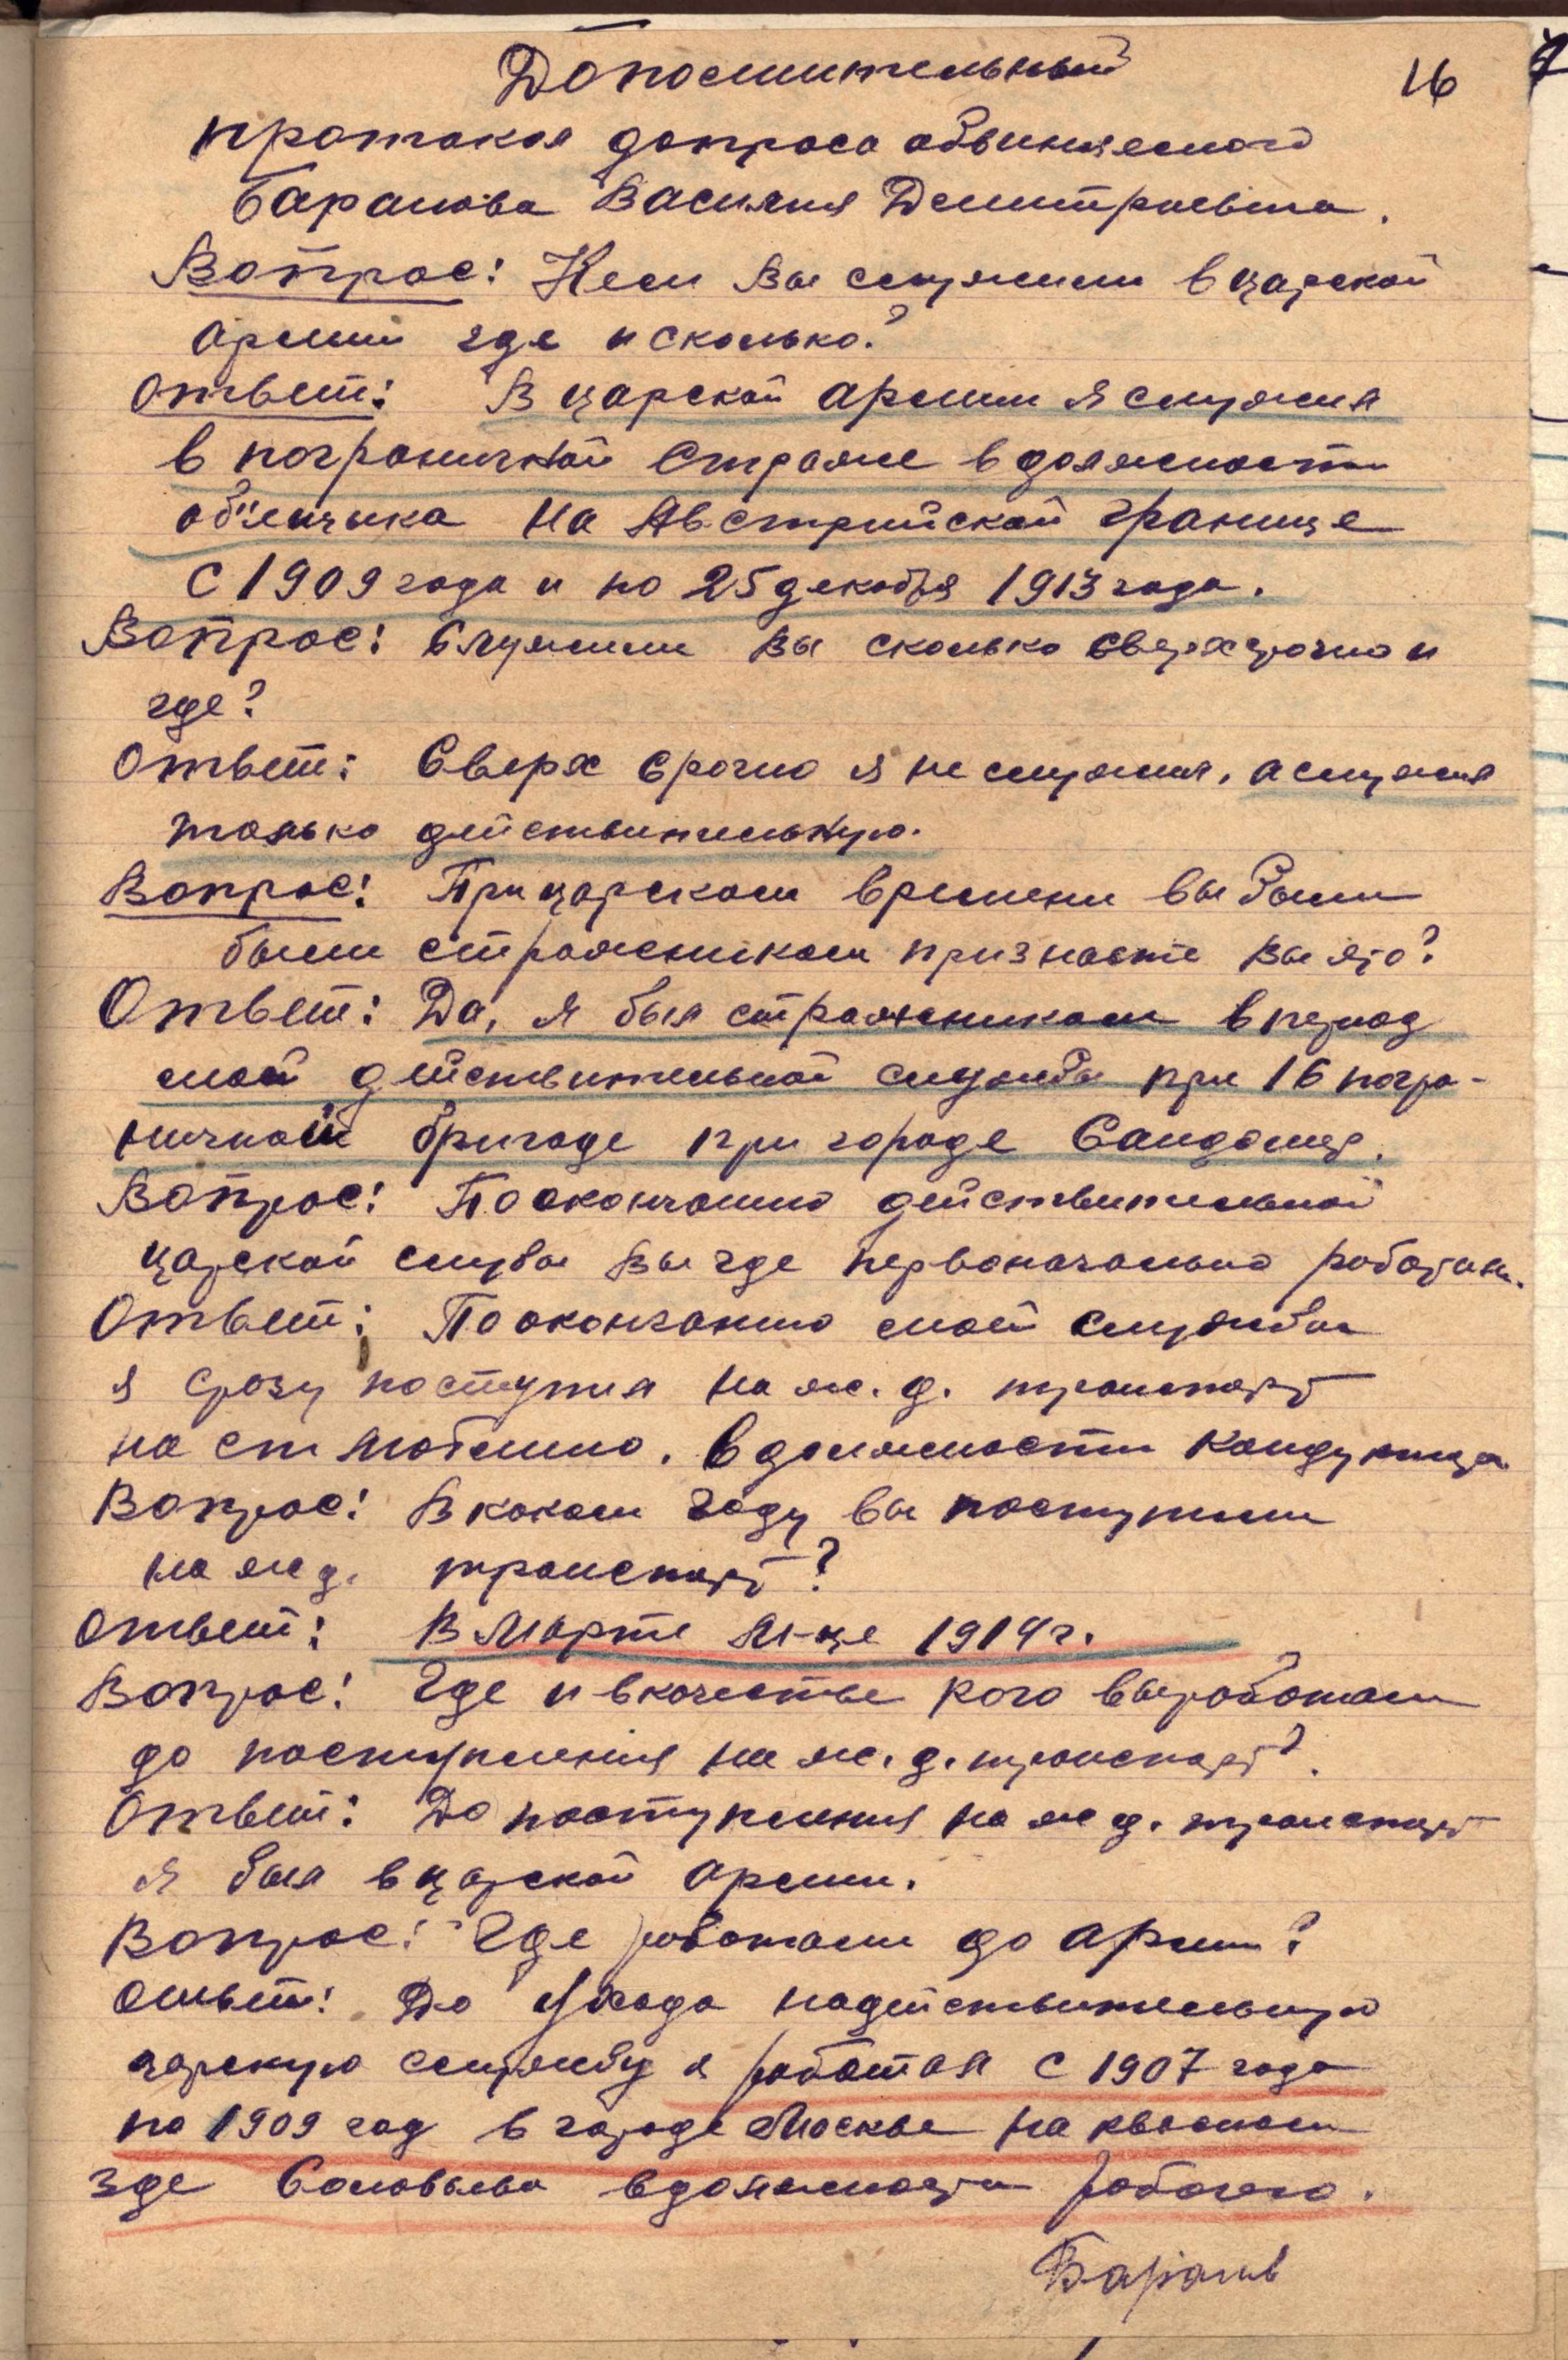 Дополнительный
16
протокол допроса обвиняемого
Баранова Василия Дмитриевича.
Вопрос: Кем Вы служили в царской
армии где и сколько?
Ответ: В царской армии я служил
в пограничной страже в должности
об'ездчика на Австрийской границе
с 1909 года и по 25 декабря 1913 года.
Вопрос: Служили Вы сколько сверхсрочно и
где?
Ответ: Сверх срочно я не служил, а служил
только действительную.
Вопрос: При царском времени вы были
были стражником признаете Вы это?
Ответ: Да, я был стражником в период
моей действительной службы при 16 погра-
ничной бригаде при городе Сандомир.
Вопрос: По окончанию действительной
царской службы Вы где первоначально работали.
Ответ: По окончанию моей службы
я сразу поступил на ж.д. транспорт
на ст Люблино. в должности кондуктора
Вопрос: В каком году вы поступили
на ж д. транспорт?
Ответ: В Марте м-це 1914 г.
Вопрос: Где и в качестве кого вы работали
до поступления на ж.д. транспорт?
Ответ: До поступления на ж д. транспорт
я был в царской армии.
Вопрос: Где работали до армии?
Ответ: До ухода на действительную
царскую службу я работал с 1907 года
по 1909 год в городе Москве на квасном
з-де Соловьева в должности рабочего.
Баранов